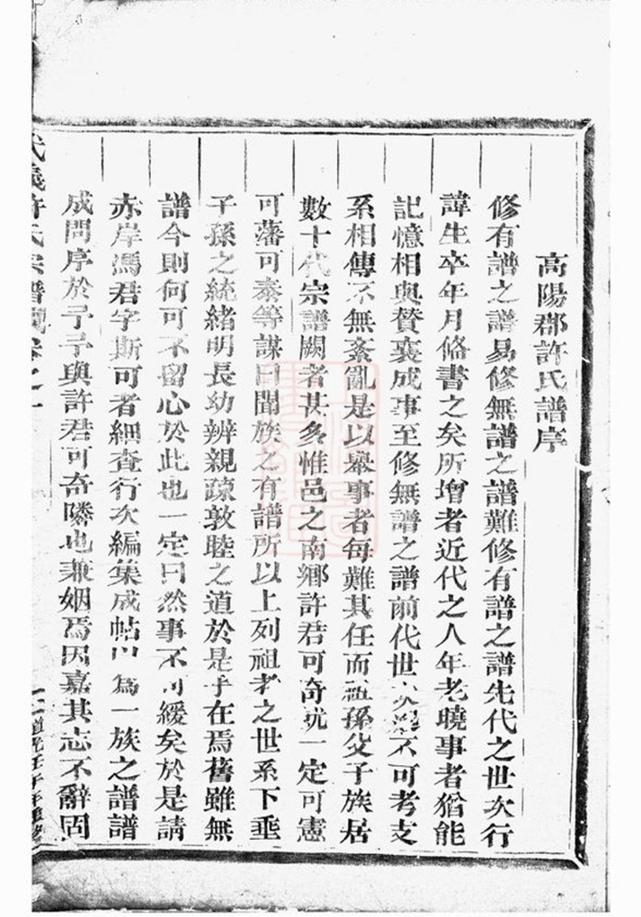 高陽郡許氏譜序
修有譜之譜易修無譜之譜難修有譜之譜先代之世次行
諱生卒年月俻書之矣所增者近代之人年老曉事者猶能
記憶相與贊襄成事至修無譜之譜前代世次不可考支
系相傳不無紊亂是以舉事者每難其任而祖孫父子族居
數十代宗譜闕者甚多惟邑之南鄉許君可奇就一定可憲
可藩可泰等謀曰聞族之有譜所以上列祖考之世系下垂
子孫之統緒明長幼辨親疏敦睦之道於是乎在焉舊雖無
譜今則何可不留心於此也一定曰然事不可緩矣於是請
赤岸馮君字斯可者細查行次編集成帖以為一族之譜譜
成問序於予予與許君可奇隣也兼姻焉因嘉其志不辭固
武義許氏宗譜卷之一
道光壬午年重修